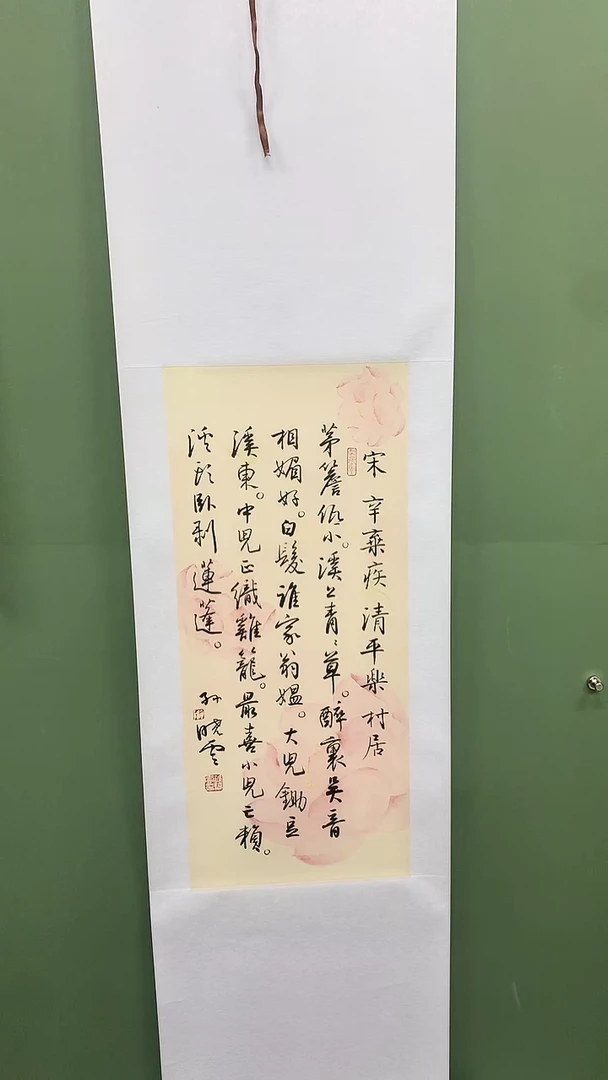 宋 辛棄疾 清平樂 村居
茅簷低小。溪上青青草。醉裏吴音
相媚好。白髮誰家翁媪。大兒鋤豆
溪東。中兒正織雞籠。最喜小兒亡賴。
溪頭卧剥蓮蓬。
孙晓雲